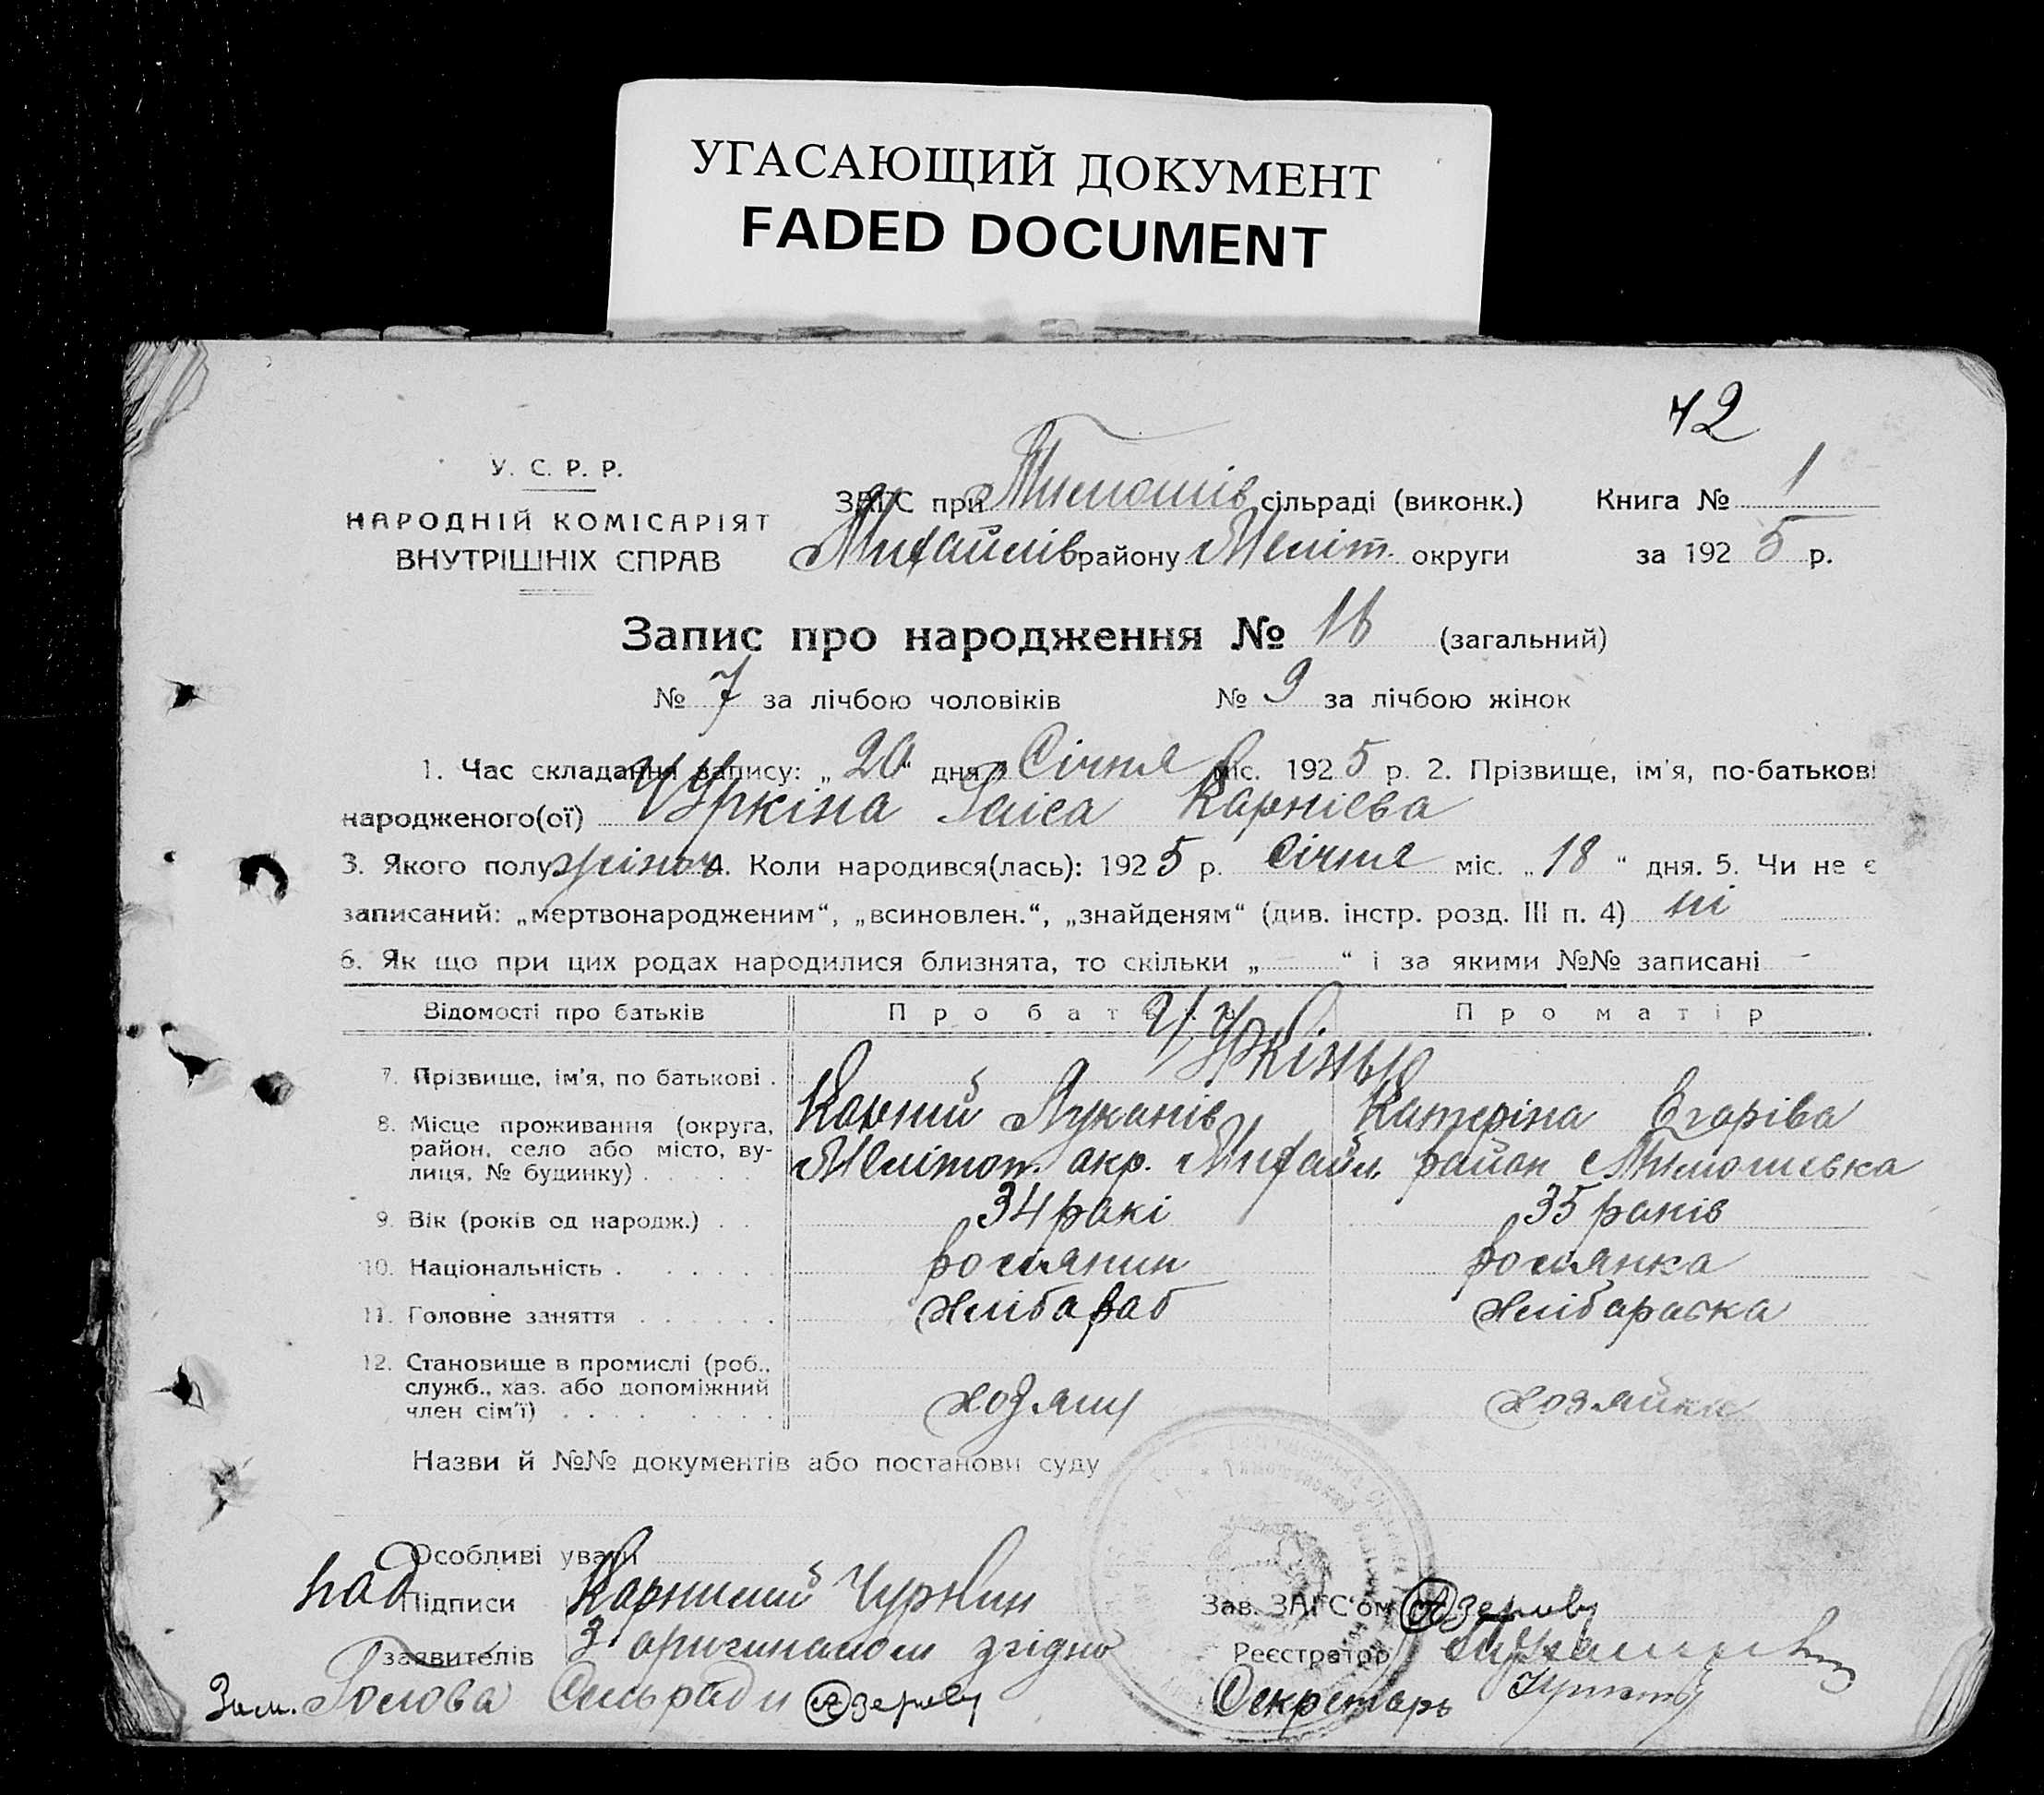 УГАСАЮЩИЙ ДОКУМЕНТ
FADED DOCUMENT
42
У. С. Р. Р.
НАРОДНІЙ КОМІСАРІЯТ
ВНУТРІШНІХ СПРАВ
ЗАГС при Тимошів сільраді (виконк.) Книга № 1
Михайлів району Меліт. округи за 1925 р.
Запис про народження № 16 (загальний)
№ 7 за лічбою чоловіків № 9 за лічбою жінок
1. Час складання запису: „20“ дня Січня міс. 1925 р. 2. Прізвище, ім'я, по-батькові
народженого(ої) Чуркіна Раіса Карнієва
3. Якого полу жіноч 4. Коли народився(лась): 1925 р. Січня міс. „18“ дня. 5. Чи не є
записаний: „мертвонародженим“, „всиновлен.“, „знайденям“ (див. інстр. розд. III п. 4) ні
6. Як що при цих родах народилися близнята, то скільки „ “ і за якими №№ записані -
Відомості про батьків Про батька Про матір
Чуркіны
7. Прізвище, ім'я, по батькові . Карний Луканів Катеріна Егоріва
8. Місце проживання (округа, район, село або місто, вулиця, № будинку) . . . . . Мелітоп. окр. Михайл. район Тимошевка
9. Вік (років од народж.) . . 34 ракі 35 раків
10. Національність . . . . . . росіянин росіянка
11. Головне заняття . . . . . . хлібараб хлібараска
12. Становище в промислі (роб., служб., хаз. або допоміжний член сім'ї) . . . . . . . хозяин хозяйка
Назви й №№ документів або постанови суду
Особливі уваги
Підписи Чуркин Зав. ЗАГС'ом
заявителів З оригиналом згідно Реєстратор
Зам. Голова Сильради Секретарь